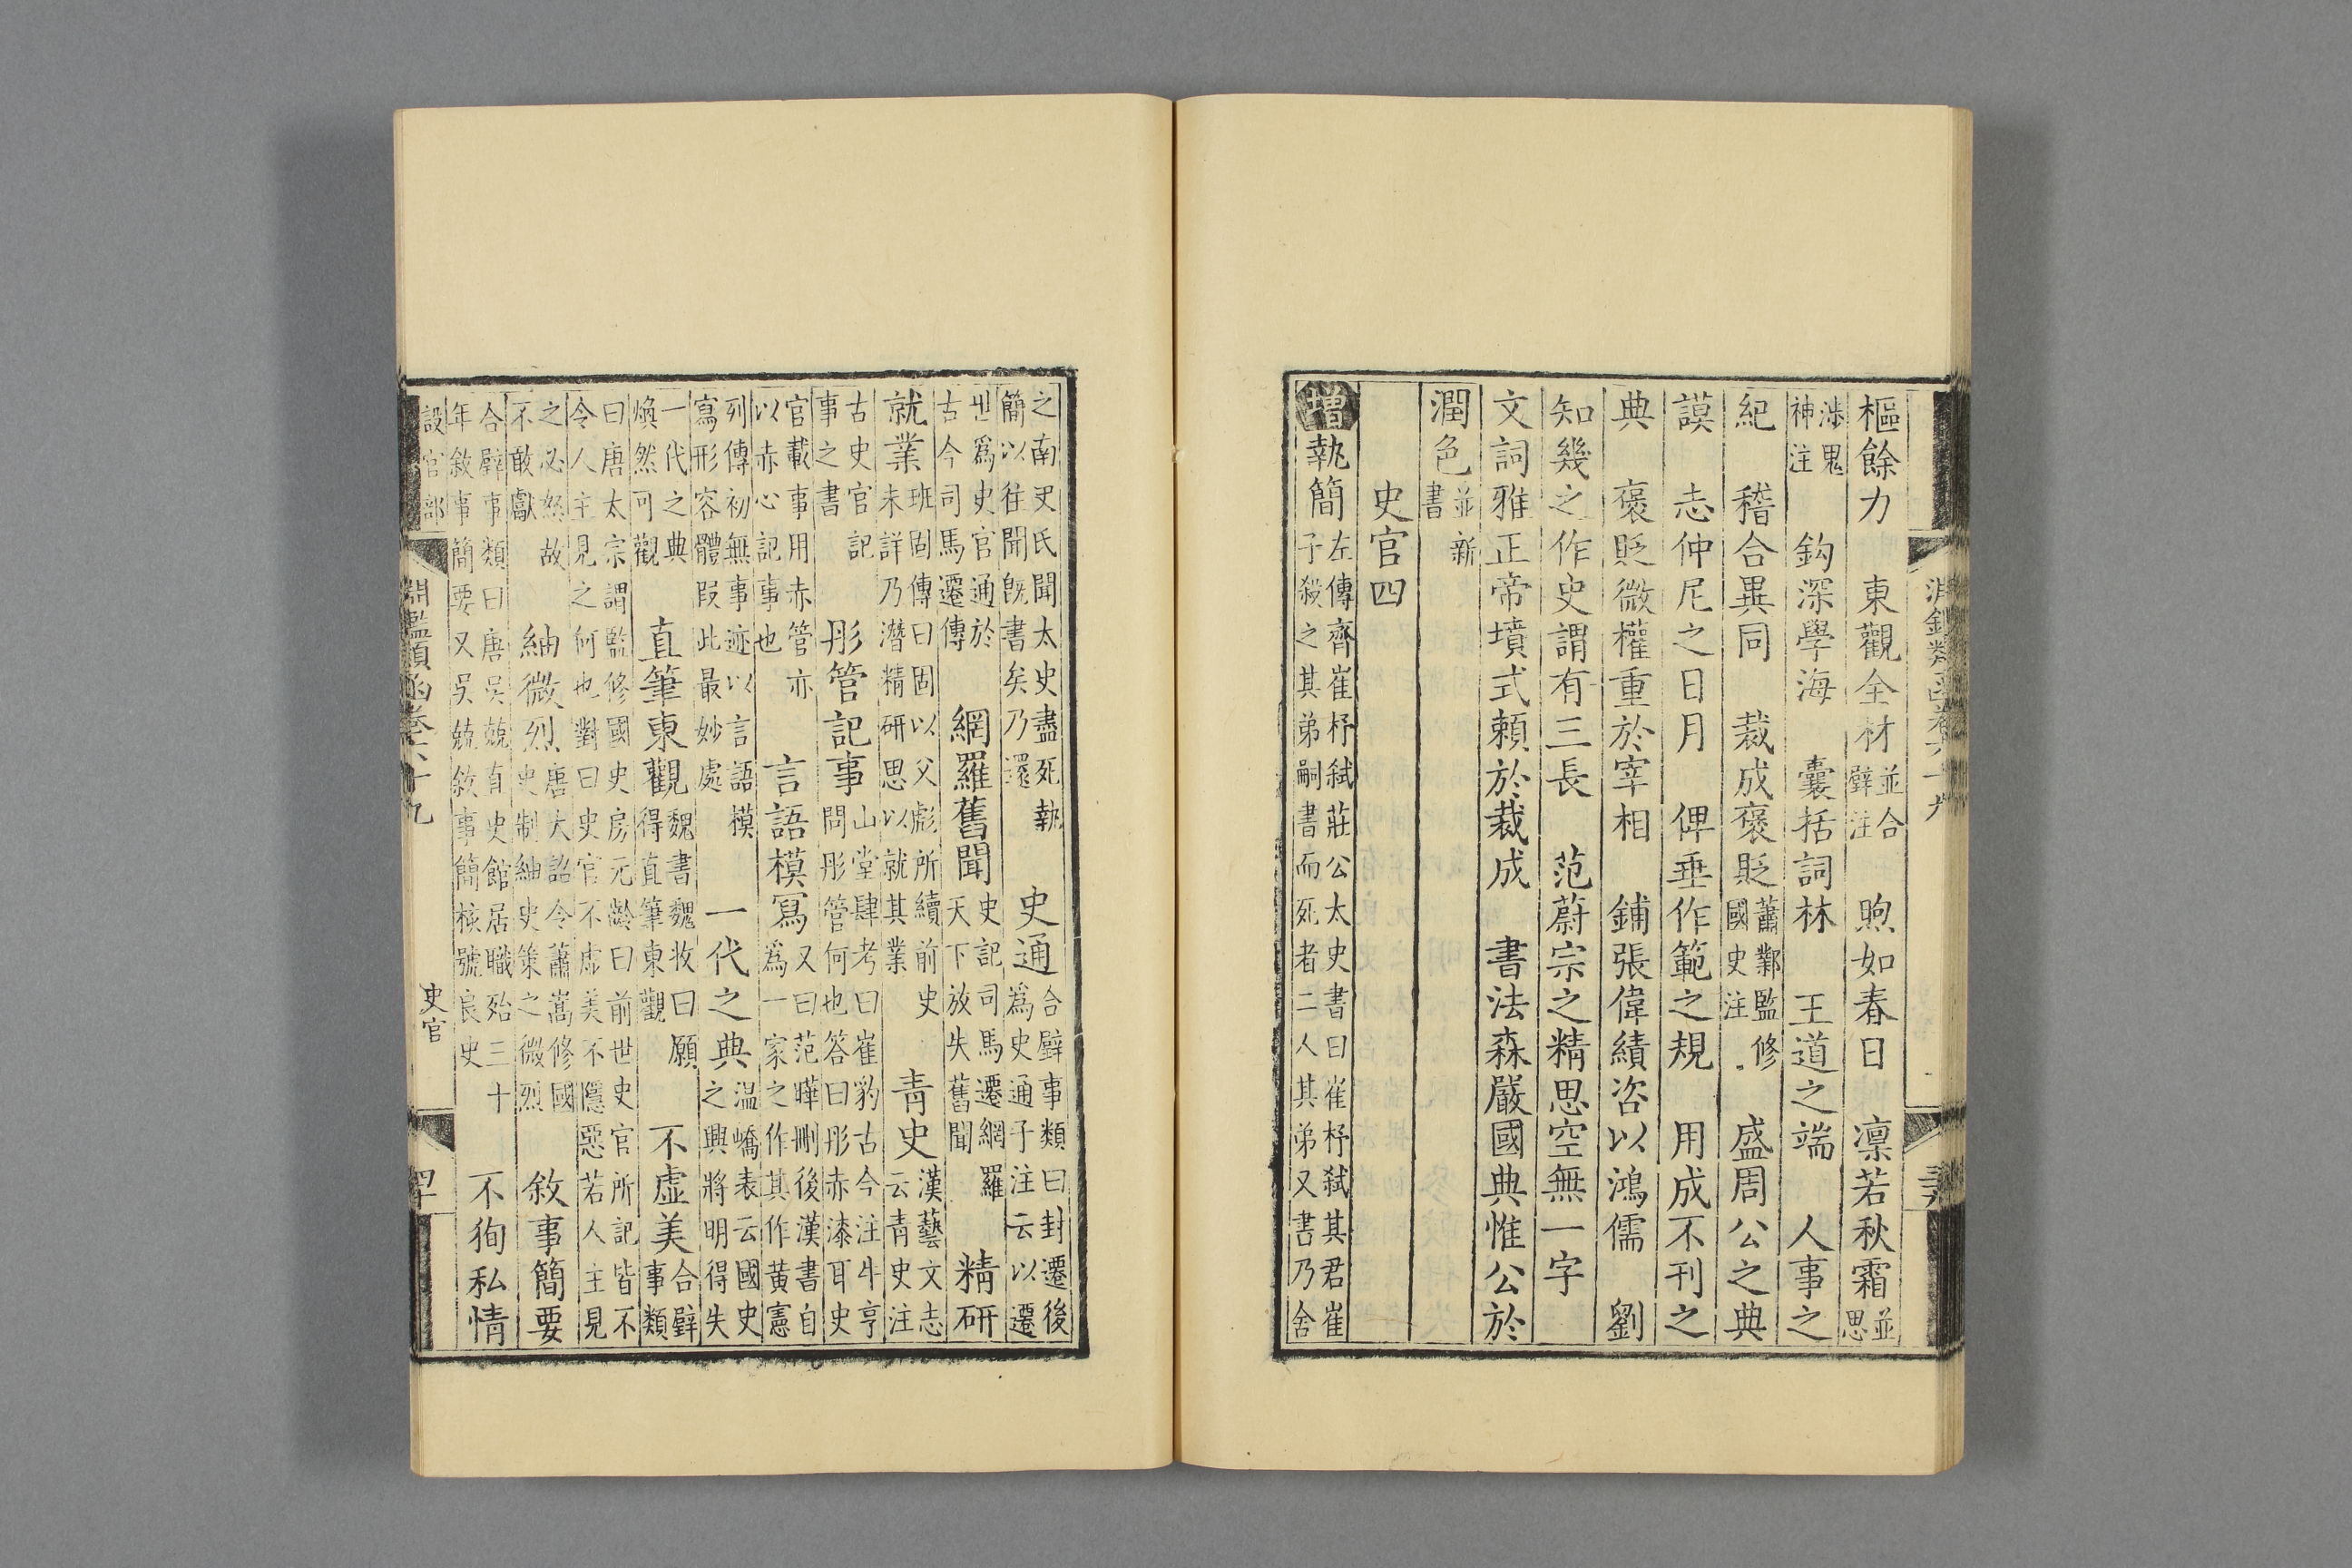 樞餘力　東觀全材並合璧注　煦如春日　凛若秋霜並思
涉鬼神注　鈎深學海　囊括詞林　王道之端　人事之
紀　稽合異同　裁成褒貶蕭鄴監修國史注　盛周公之典
謨　志仲尼之日月　俾垂作範之規　用成不刊之
典　褒貶微權重於宰相　鋪張偉績咨以鴻儒　劉
知幾之作史謂有三長　范蔚宗之精思空無一字
文詞雅正帝墳式頼於裁成　書法森嚴國典惟公於
潤色並新書
史官四
增執簡左傳齊崔杼弑莊公太史書曰崔杼弑其君崔子殺之其弟嗣書而死者二人其弟又書乃舍
之南史氏聞太史盡死執簡以往聞旣書矣乃還　史通合璧事類曰封遷後爲史通子注云以遷
世爲史官通於古今司馬遷傳　網羅舊聞史記司馬遷網羅天下放失舊聞　精研
就業班固傳曰固以父彪所續前史未詳乃潛精研思以就其業　靑史漢藝文志云靑史注
古史官記事之書　彤管記事山堂肆考曰崔豹古今注牛亨問彤管何也答曰彤赤漆耳史
官載事用赤管亦以赤心記事也　言語模寫又曰范曄刪後漢書自爲一家之作其作黃憲
列傳初無事迹以言語模寫形容體叚此最妙處　一代之典温嶠表云國史之興將明得失
一代之典煥然可觀　直筆東觀魏書魏收曰願得直筆東觀　不虛美合璧事類
曰唐太宗謂監修國史房元齡曰前世史官所記皆不令人主見之何也對曰史官不虛美不隱惡若人主見
之必怒故不敢獻　紬微烈唐大詔令蕭嵩修國史制紬史策之微烈　敘事簡要
合璧事類曰唐吳兢有史館居職殆三十年敘事簡要又吳兢敘事簡核號良史　不狥私情
設官部　淵鑑類函卷六十九　史官　四十